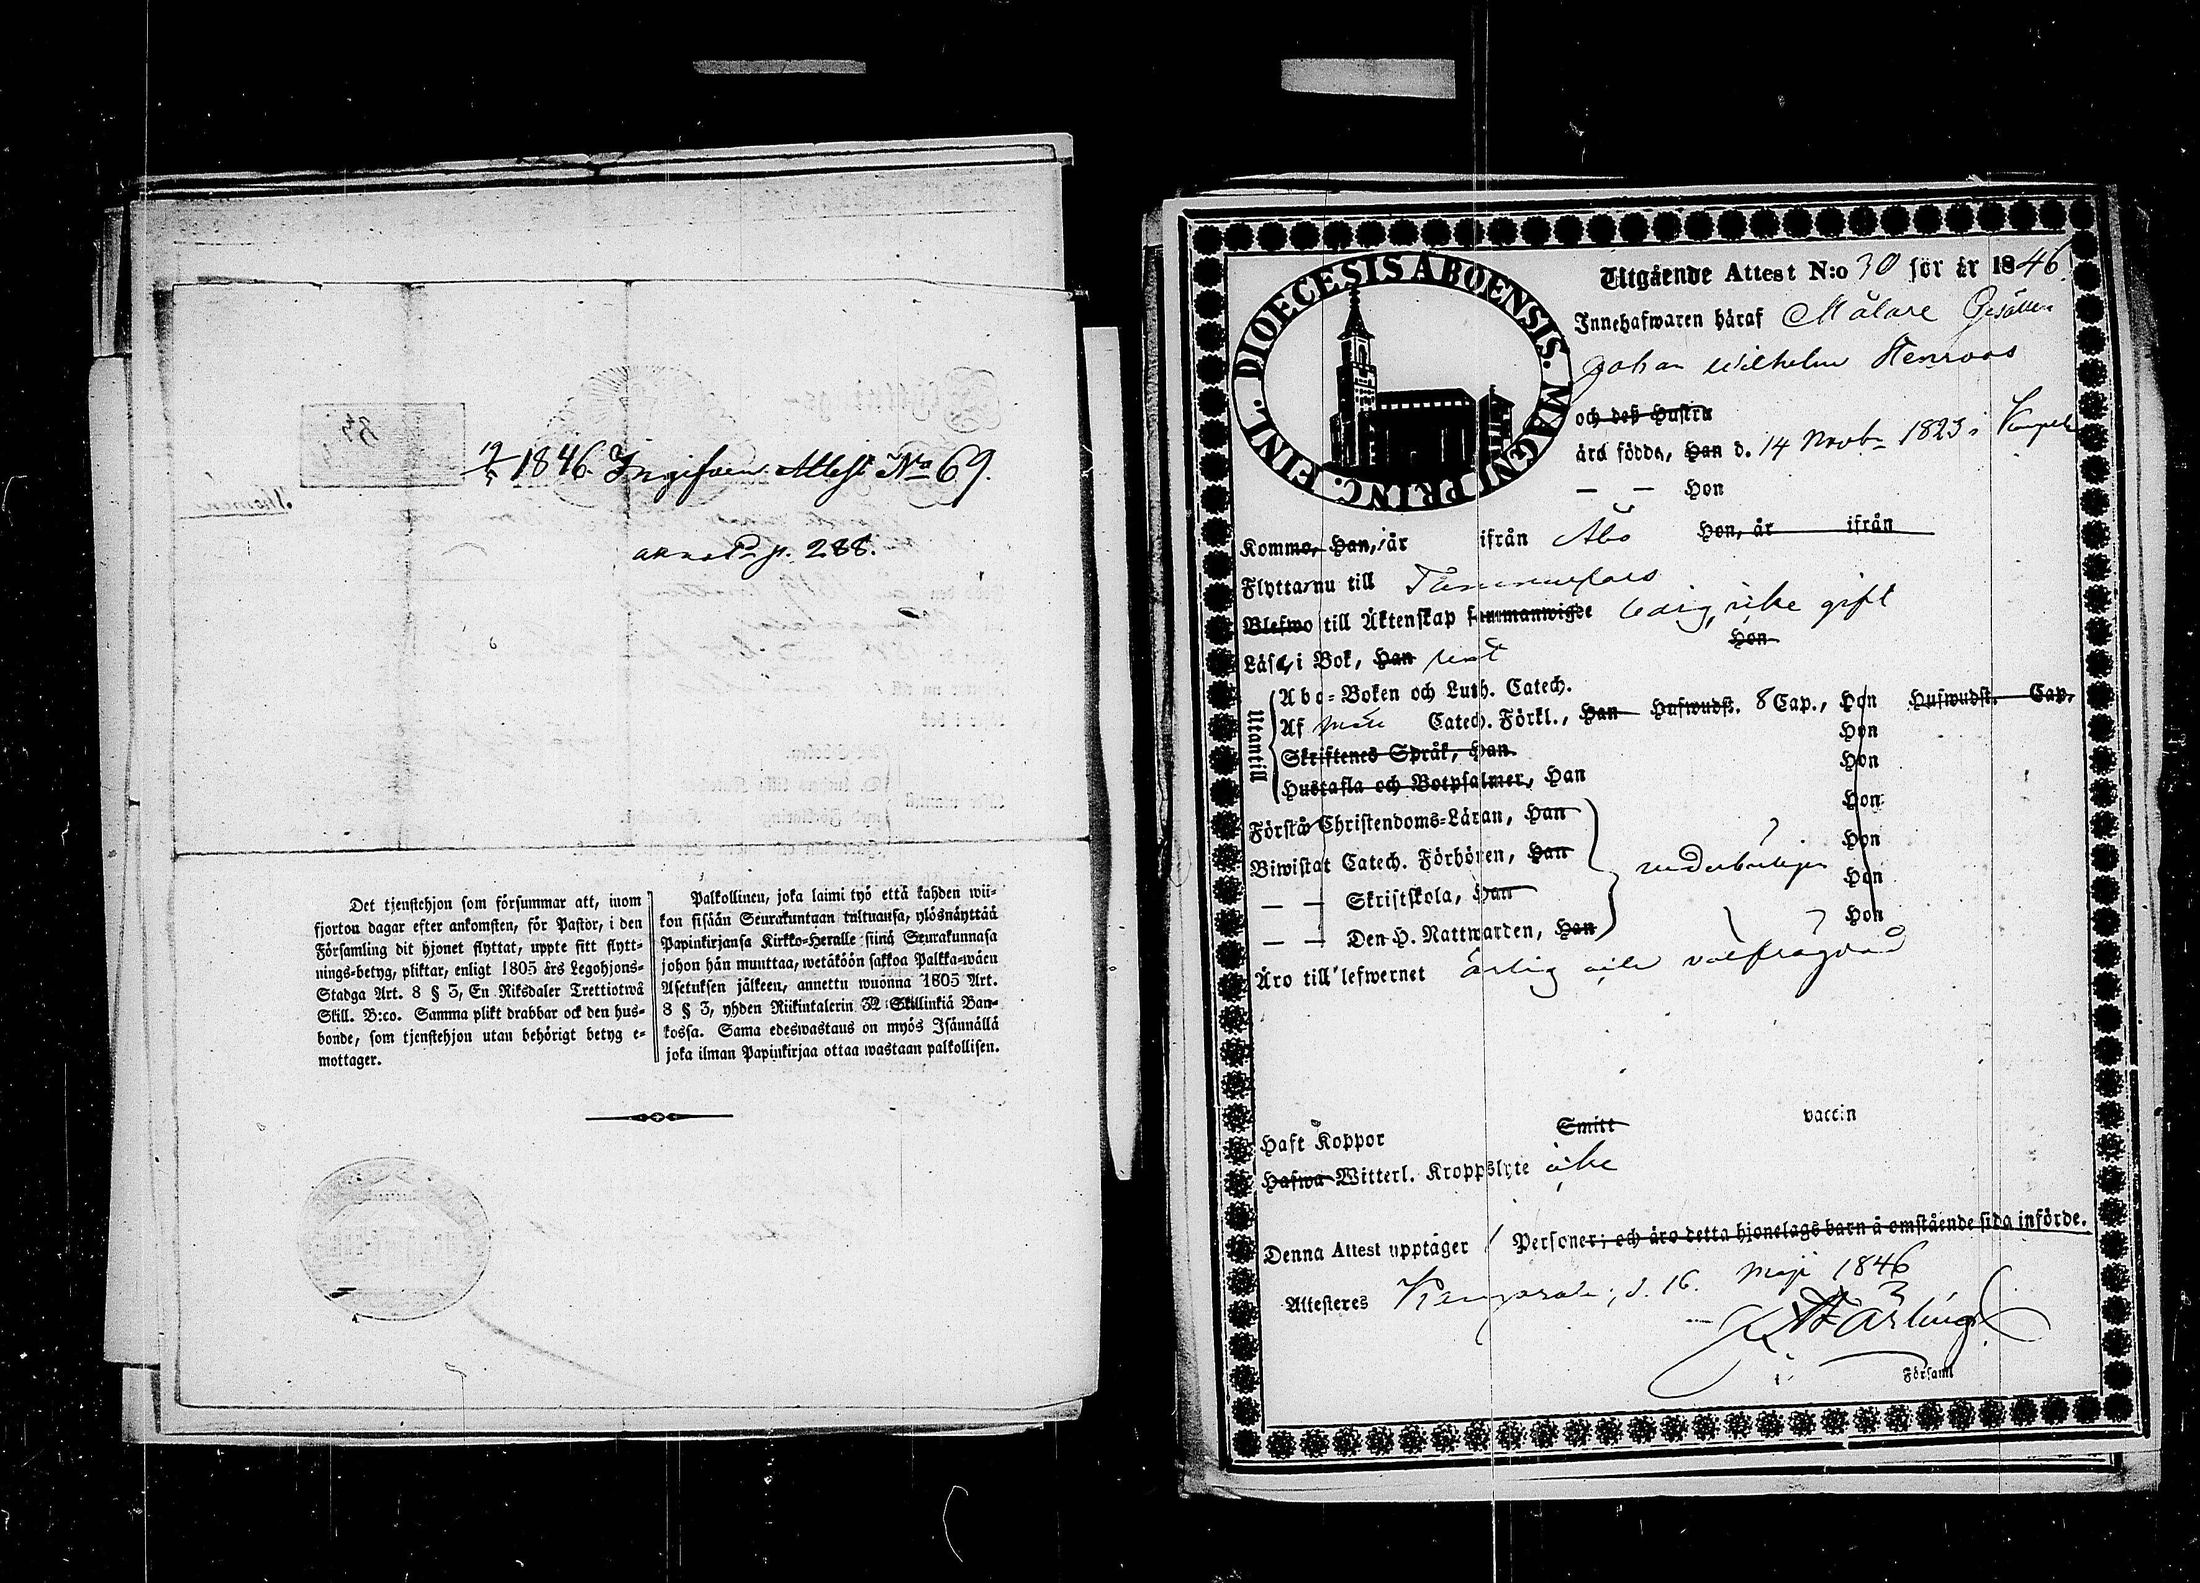 1846. Ingifven Attest No 69.
pag. 288.
Det tjenstehjon som försummar att, inom
fjorton dagar efter ankomsten, för Pastor, i den
Församling dit hjonet flyttat, uppte sitt flytt-
nings-betyg, pliktar, enligt 1805 års Legohjons-
Stadga Art. 8 § 3, En Riksdaler Trettiotwå
Skill. B:co. Samma plikt drabbar ock den hus-
bonde, som tjenstehjon utan behörigt betyg e-
mottager.
Palkollinen, joka laimi lyö että kahden wii-
kon sisään Seurakuntaan tultuansa, ylösnäyttää
Papinkirjansa Kirkko-Heralle siinä Seurakunnasa
johon hän muuttaa, wetäköön sakkoa Palkka-wäen
Asetuksen jälkeen, annettu wuonna 1805 Art.
8 § 3, yhden Riikintalerin 32 Skillinkiä Ban-
kossa. Sama edeswastaus on myös Isännällä
joka ilman Papinkirjaa ottaa wastaan palkollisen.
DIOECESIS ABOENSIS. MAGNI PRINC. FINL.
Utgående Attest N:o 30 för år 1846.
Innehafwaren häraf Målare Gesällen
Johan Wilhelm Stenroos
och deß Hustru
äro födde, Han d. 14 Novbr 1823 i
— — Hon
Kommo, Han, år ifrån Åbo Hon, år ifrån
Flytta nu till Tammerfors
Blefwo till Äktenskap sammanwigde ledig, icke gift
Läsa i Bok, Han rent Hon
Utantill
Abc-Boken och Luth. Catech.
Af Catech. Förkl., Han Hufwudst. 8 Cap., Hon Hufwudst. Cap.
Skriftenes Språk, Han Hon
Hustafla och Botpsalmer, Han Hon
Förstå Christendoms-Läran, Han Hon
Biwistat Catech. Förhören, Han Hon
— — Skriftskola, Han Hon
— — Den H. Nattwarden, Han Hon
vederbörligen
Äro till lefwernet ärlig och välfrägdad
Haft Koppor Smitt vaccin
Hafwa Witterl. Kroppslyte icke
Denna Attest upptager 1 Personer; och äro detta hjonelags barn å omstående sida införde.
Attesteres d. 16. Maji 1846
i Församl